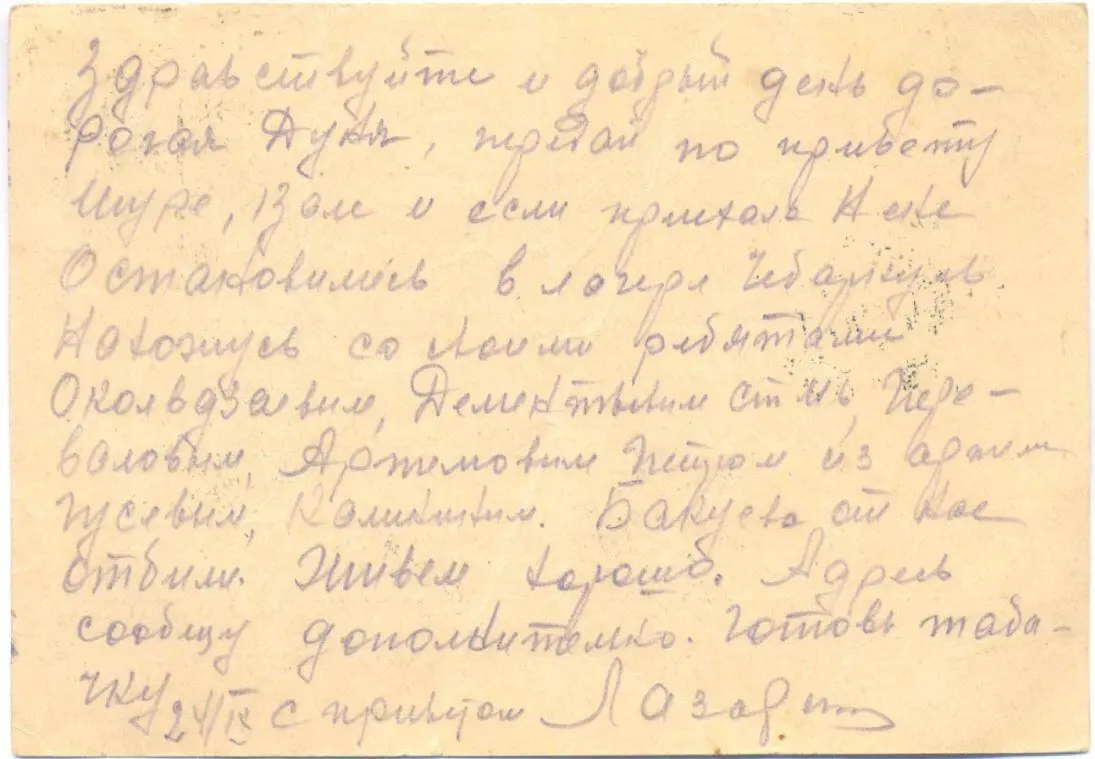 Здравствуйте и добрый день до-
рогая Дуня, передай по привету
Шуре, Вале и если приехала Нене
Остановились в лагере Чебаркуль
Нахожусь со своими ребятами
Дементьевым Пере-
валовым, Артемовым Петром из
Гусевым, Калининым. от нас
отбили. Живем хорошо. Адрес
сообщу дополнительно. Готовь таба-
чку 24/IX с приветом